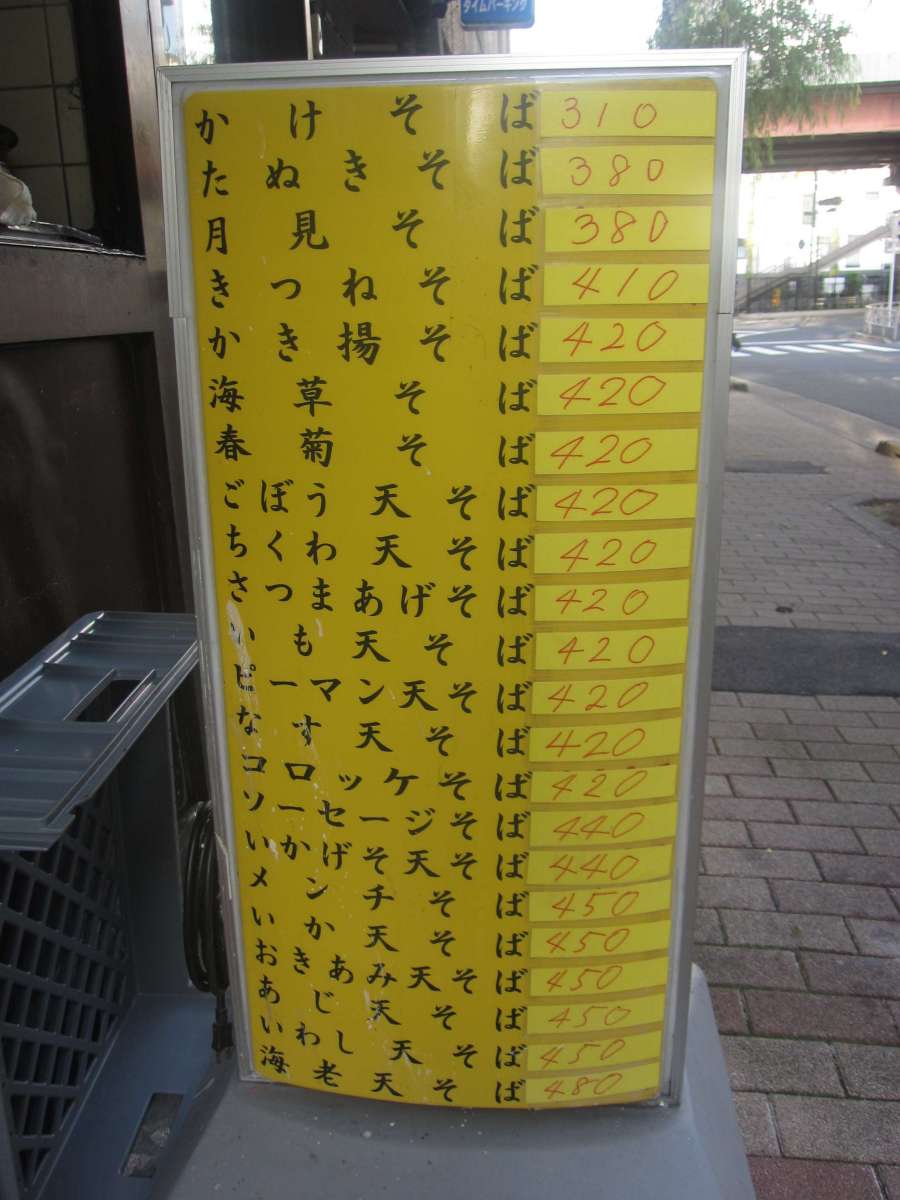 タイムパーキング
かけそば 310
たぬきそば 380
月見そば 380
きつねそば 410
かき揚そば 420
海草そば 420
春菊そば 420
ごぼう天そば 420
ちくわ天そば 420
さつまあげそば 420
いも天そば 420
ピーマン天そば 420
なす天そば 420
コロッケそば 420
ソーセージそば 440
いかげそ天そば 440
メンチそば 450
いか天そば 450
おきあみ天そば 450
あじ天そば 450
いわし天そば 450
海老天そば 480